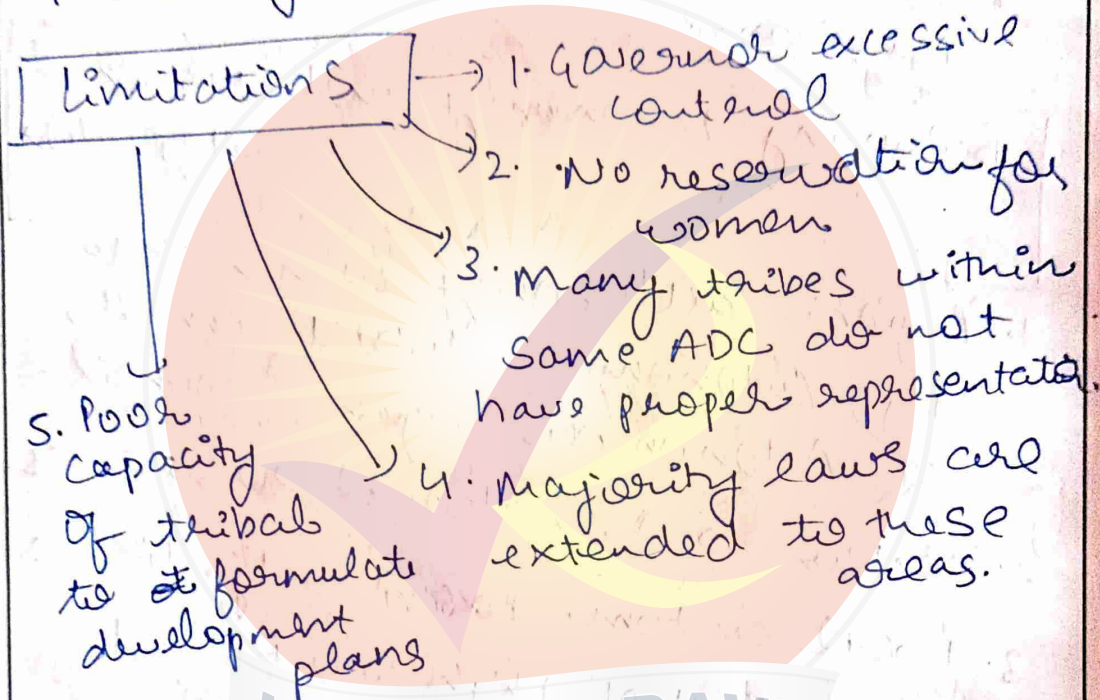 Limitations
1. Governor excessive
control
2. No reservation for
women
3. Many tribes within
same ADC do not
have proper representation.
4. Majority laws are
extended to these
areas.
5. Poor
capacity
of tribal
to formulate
development
plans